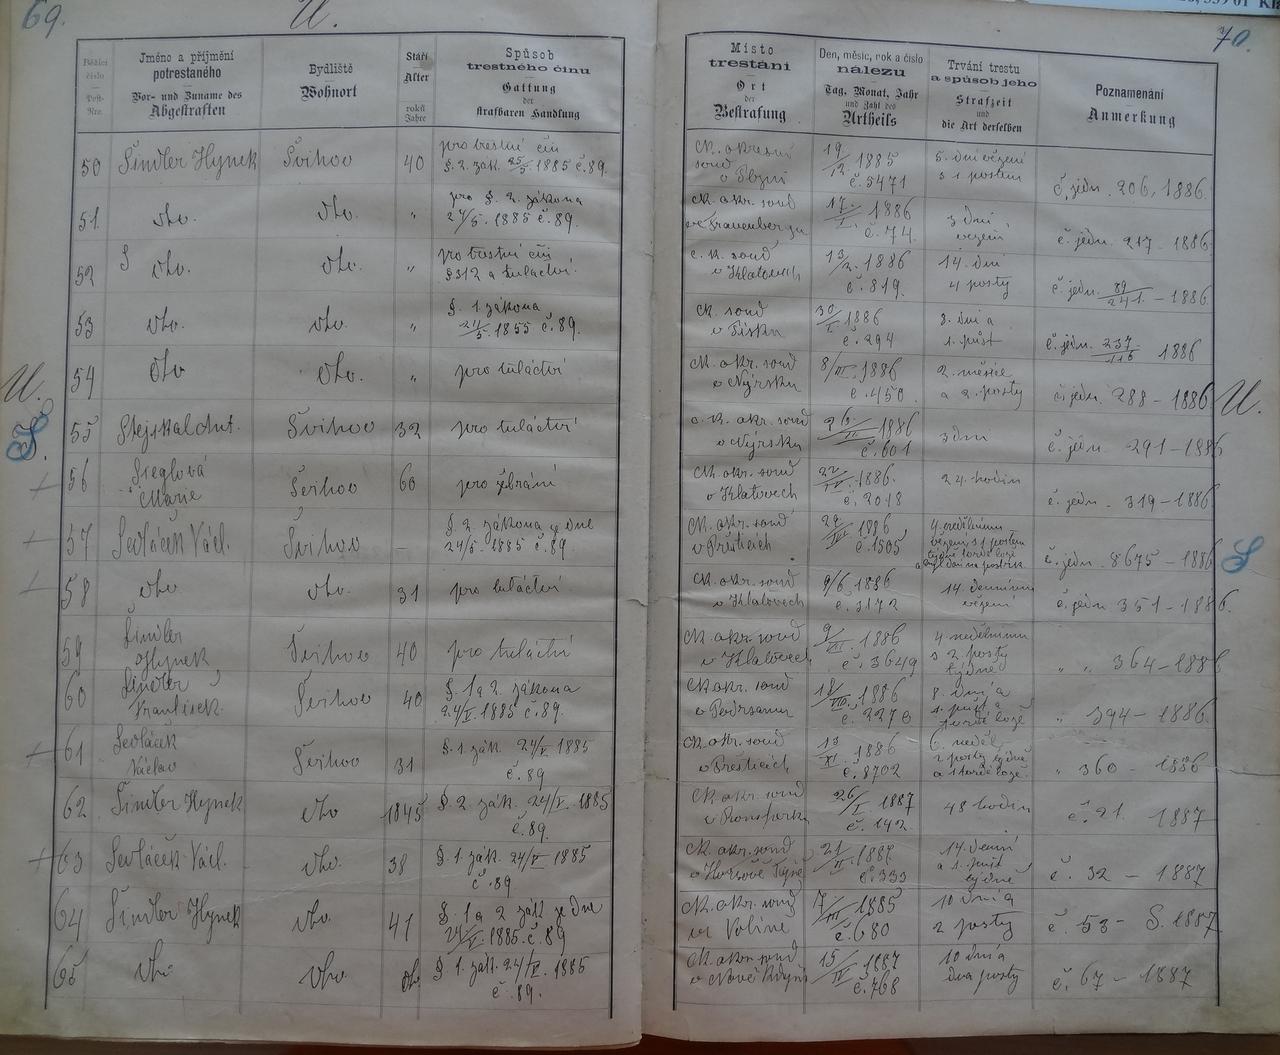 69.
U.
70.
Běžící číslo
Post-Nro.
Jméno a příjmění potrestaného
Vor- und Zuname des Abgestraften
Bydliště
Wohnort
Stáří
Alter
roků
Jahre
Spůsob trestného činu
Gattung der strafbaren Handlung
Místo trestání
Ort der Bestrafung
Den, měsíc, rok a číslo nálezu
Tag, Monat, Jahr und Zahl des Urtheils
Trvání trestu a spůsob jeho
Strafzeit und die Art derselben
Poznamenání
Anmerkung
50 Šindler Hynek Švihov 40 pro trestné čin §. 2. zák. 25/5. 1885 č. 89. Ck. okresní soud v Plzni 19/12. 1885 č. 5471 5. dní vězení s 1 postem č. jedn. 206, 1886.
51. dto. dto. " pro §. 2. zákona 24/5. 1885 č. 89. Ck. okr. soud ve Frauenbergu 17./I. 1886 č. 74. 3 dní vězení č. jedn. 217 - 1886.
52 dto. dto. " pro trestní čin § 312 a tuláctví. c. k. soud v Klatovech 13/2. 1886 č. 819. 14. dní 4 posty č. jedn. 89/241. - 1886
53 dto. dto. " §. 1 zákona 24/5. 1855 č. 89. Ck. soud v Písku 30/I 1886 č. 294 3. dni a 1. půst č. jedn. 237/115 1886
54 dto dto. " pro tuláctví Ck. okr. soud v Nýrsku 8/III. 1886 č. 450. 2. měsíce a 2. posty č. jedn. 288 - 1886
U.
U.
S.
55 Stejskal Ant. Švihov 32 pro tuláctví c. k. okr. soud v Nýrsku 26./III 1886 č. 601 3 dni č. jedn. 291 - 1886
56 Sieglová Marie Švihov 60 pro žebrání Ck. okr. soud v Klatovech 22/IV. 1886. č. 2018 24. hodin č. jedn. 319 - 1886
57 Sedláček Václ. Švihov - §. 2. zákona ze dne 24/5. 1885 č. 89 Ck. okr. soud v Přešticích 1886 č. 1505 4. nedělnímu vězení s 1 postem týdně tvrdé lože č. jedn. 8675 - 1886
S
58 dto dto. 31 pro tuláctví Ck. okr. soud v Klatovech 9/6. 1886 č. 3172 14. denním vězení č. jedn. 351 - 1886.
59 Šindler Hynek Švihov 40 pro tuláctví Ck. okr. soud v Klatovech 9/VII. 1886 č. 3649 4 nedělnímu s 2. posty týdně " " 364 - 1886
60 Šindler František Švihov 40 §. 1 a 2. zákona 24/V. 1885 č. 89. Ck okr. soud v 18/VIII. 1886 č. 2278 8. dní a 1. půst a tvrdé lože " 394 - 1886.
61 Sedláček Václav Švihov 31 §. 1. zák. 24/V 1885 č. 89 Ck. okr. soud v Přešticích 13/XI. 1886 č. 8702 6. neděl, 2 posty týdně a tvrdé lože. " 360 - 1886
62 Šindler Hynek dto 1845 §. 2. zák. 24/V. 1885 č. 89. Ck. okr. soud v Ronsperku 26/I 1887 č. 142. 48 hodin č. 21. 1887
63 Sedláček Václ. dto. 38 §. 1. zák. 24/V 1885 č. 89 Ck. okr. soud v Horšově Týně 21/II. 1887. č. 333 14. denní a 1. půst týdně č. 32 - 1887
64 Šindler Hynek dto. 41 §. 1 a 2 zák ze dne 24/V. 1885. č. 89 Ck. okr. soud ve Volíně 7/III 1885 č. 680 10 dní a 2 posty č. 53 - S. 1887
65 dto dto dto §. 1. zák. 24/V. 1885 č. 89. Ck. okr. soud v Nové Kdyni 15/IV 1887 č. 768 10 dní a dva posty č. 67 - 1887